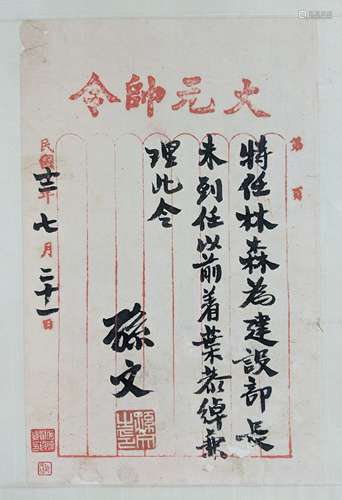 大元帥令
第 頁
特任林森為建設部長
未到任以前着葉恭綽兼
理此令
孫文
孫文之印
民國十二年七月二十一日